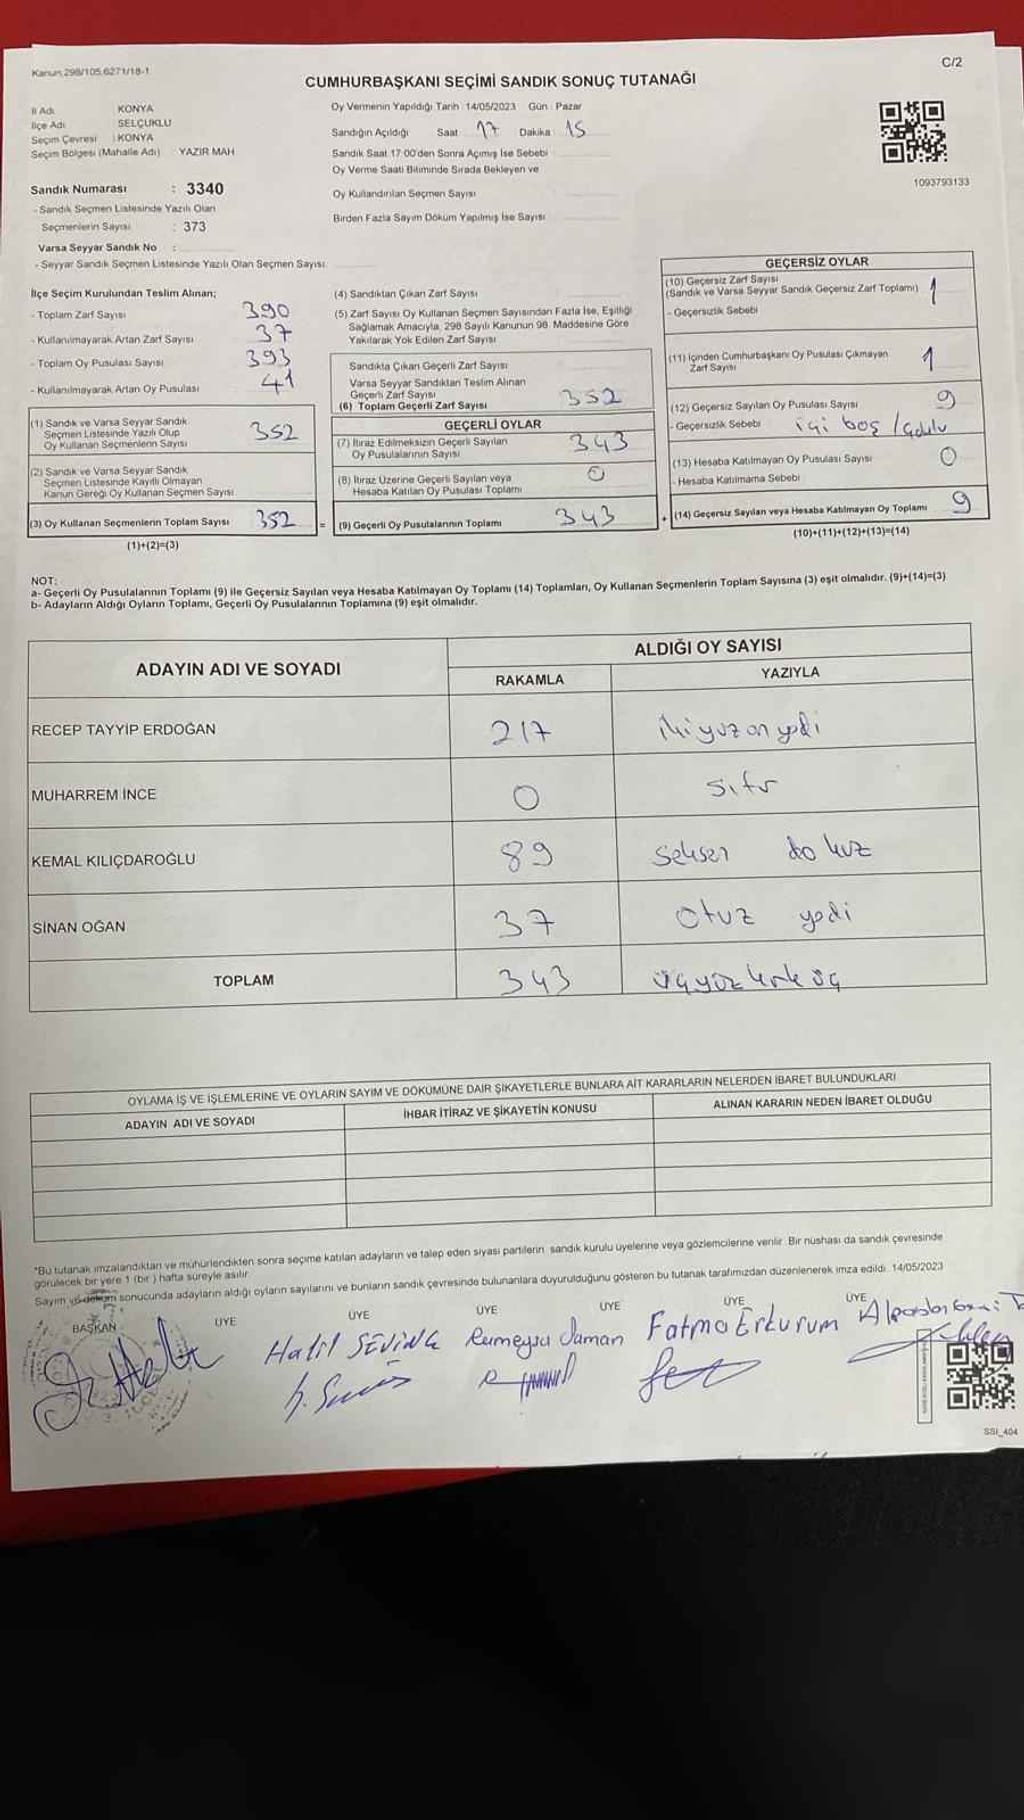 Kanun 298/105,6271/18-1
C/2
CUMHURBAŞKANI SEÇİMİ SANDIK SONUÇ TUTANAĞI
İl Adı KONYA
İlçe Adı SELÇUKLU
Seçim Çevresi : KONYA
Seçim Bölgesi (Mahalle Adı) YAZIR MAH
Sandık Numarası : 3340
- Sandık Seçmen Listesinde Yazılı Olan
Seçmenlerin Sayısı : 373
Varsa Seyyar Sandık No :
- Seyyar Sandık Seçmen Listesinde Yazılı Olan Seçmen Sayısı
Oy Vermenin Yapıldığı Tarih : 14/05/2023 Gün : Pazar
Sandığın Açıldığı Saat 17 Dakika 15
Sandık Saat 17:00'den Sonra Açılmış İse Sebebi
Oy Verme Saati Bitiminde Sırada Bekleyen ve
Oy Kullandırılan Seçmen Sayısı
Birden Fazla Sayım Döküm Yapılmış İse Sayısı
1093793133
İlçe Seçim Kurulundan Teslim Alınan;
- Toplam Zarf Sayısı 390
- Kullanılmayarak Artan Zarf Sayısı 37
- Toplam Oy Pusulası Sayısı 393
- Kullanılmayarak Artan Oy Pusulası 41
(1) Sandık ve Varsa Seyyar Sandık
Seçmen Listesinde Yazılı Olup
Oy Kullanan Seçmenlerin Sayısı 352
(2) Sandık ve Varsa Seyyar Sandık
Seçmen Listesinde Kayıtlı Olmayan
Kanun Gereği Oy Kullanan Seçmen Sayısı
(3) Oy Kullanan Seçmenlerin Toplam Sayısı 352 =
(1)+(2)=(3)
(4) Sandıktan Çıkan Zarf Sayısı
(5) Zarf Sayısı Oy Kullanan Seçmen Sayısından Fazla İse, Eşitliği
Sağlamak Amacıyla, 298 Sayılı Kanunun 98. Maddesine Göre
Yakılarak Yok Edilen Zarf Sayısı
Sandıkta Çıkan Geçerli Zarf Sayısı
Varsa Seyyar Sandıktan Teslim Alınan
Geçerli Zarf Sayısı
(6) Toplam Geçerli Zarf Sayısı 352
GEÇERLİ OYLAR
(7) İtiraz Edilmeksizin Geçerli Sayılan
Oy Pusulalarının Sayısı 343
(8) İtiraz Üzerine Geçerli Sayılan veya
Hesaba Katılan Oy Pusulası Toplamı 0
(9) Geçerli Oy Pusulalarının Toplamı 343 +
GEÇERSİZ OYLAR
(10) Geçersiz Zarf Sayısı
(Sandık ve Varsa Seyyar Sandık Geçersiz Zarf Toplamı) 1
- Geçersizlik Sebebi
(11) İçinden Cumhurbaşkanı Oy Pusulası Çıkmayan
Zarf Sayısı 1
(12) Geçersiz Sayılan Oy Pusulası Sayısı 9
- Geçersizlik Sebebi içi boş /
(13) Hesaba Katılmayan Oy Pusulası Sayısı 0
- Hesaba Katılmama Sebebi
(14) Geçersiz Sayılan veya Hesaba Katılmayan Oy Toplamı 9
(10)+(11)+(12)+(13)=(14)
NOT:
a- Geçerli Oy Pusulalarının Toplamı (9) ile Geçersiz Sayılan veya Hesaba Katılmayan Oy Toplamı (14) Toplamları, Oy Kullanan Seçmenlerin Toplam Sayısına (3) eşit olmalıdır. (9)+(14)=(3)
b- Adayların Aldığı Oyların Toplamı, Geçerli Oy Pusulalarının Toplamına (9) eşit olmalıdır.
ADAYIN ADI VE SOYADI
ALDIĞI OY SAYISI
RAKAMLA YAZIYLA
RECEP TAYYİP ERDOĞAN 217 ikiyüz on yedi
MUHARREM İNCE 0 sıfır
KEMAL KILIÇDAROĞLU 89 seksen dokuz
SİNAN OĞAN 37 otuz yedi
TOPLAM 343 üçyüz kırk üç
OYLAMA İŞ VE İŞLEMLERİNE VE OYLARIN SAYIM VE DÖKÜMÜNE DAİR ŞİKAYETLERLE BUNLARA AİT KARARLARIN NELERDEN İBARET BULUNDUKLARI
ADAYIN ADI VE SOYADI İHBAR İTİRAZ VE ŞİKAYETİN KONUSU ALINAN KARARIN NEDEN İBARET OLDUĞU
*Bu tutanak imzalandıktan ve mühürlendikten sonra seçime katılan adayların ve talep eden siyasi partilerin sandık kurulu üyelerine veya gözlemcilerine verilir. Bir nüshası da sandık çevresinde
görülecek bir yere 1 (bir) hafta süreyle asılır
Sayım ve döküm sonucunda adayların aldığı oyların sayılarını ve bunların sandık çevresinde bulunanlara duyurulduğunu gösteren bu tutanak tarafımızdan düzenlenerek imza edildi. 14/05/2023
BAŞKAN ÜYE ÜYE ÜYE ÜYE ÜYE ÜYE
Halil SEVİNÇ Rumeysa Yaman Fatma Erkurum
SSI_404